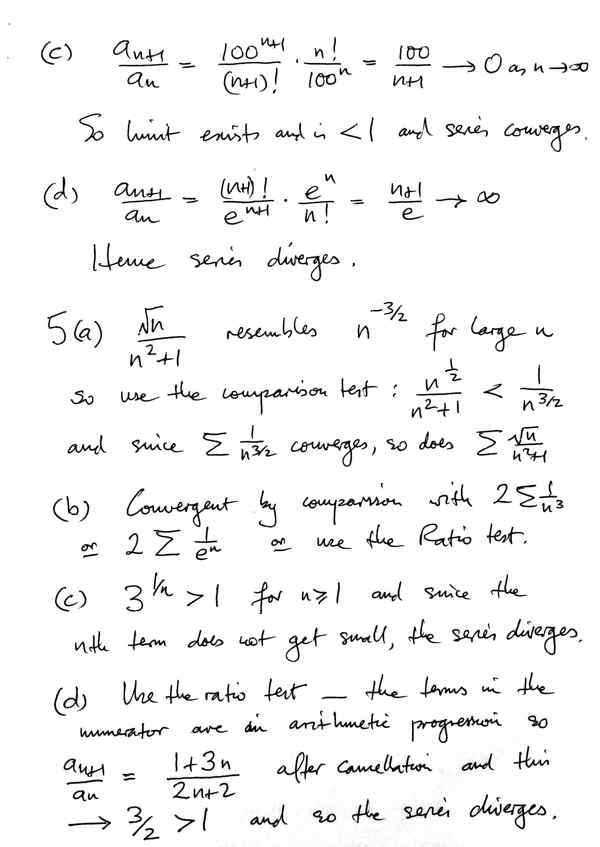 (c) a_{n+1}/a_n = 100^{n+1}/(n+1)! · n!/100^n = 100/(n+1) → 0 as n→∞
So limit exists and is < 1 and series converges.
(d) a_{n+1}/a_n = (n+1)!/e^{n+1} · e^n/n! = (n+1)/e → ∞
Hence series diverges.
5(a) √n/(n²+1) resembles n^{-3/2} for large n
so use the comparison test : n^{1/2}/(n²+1) < 1/n^{3/2}
and since Σ 1/n^{3/2} converges, so does Σ √n/(n²+1)
(b) Convergent by comparison with 2Σ 1/n³
or 2 Σ 1/e^n or use the Ratio test.
(c) 3^{1/n} > 1 for n ≥ 1 and since the
nth term does not get small, the series diverges.
(d) Use the ratio test — the terms in the
numerator are in arithmetic progression so
a_{n+1}/a_n = (1+3n)/(2n+2) after cancellation and this
→ 3/2 > 1 and so the series diverges.